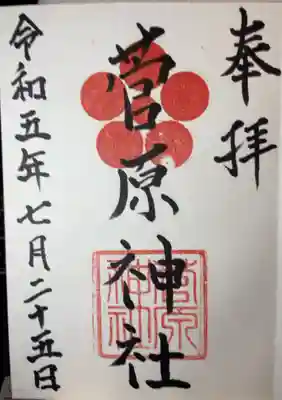 奉拝
菅原神社
菅原神社
令和五年七月二十五日